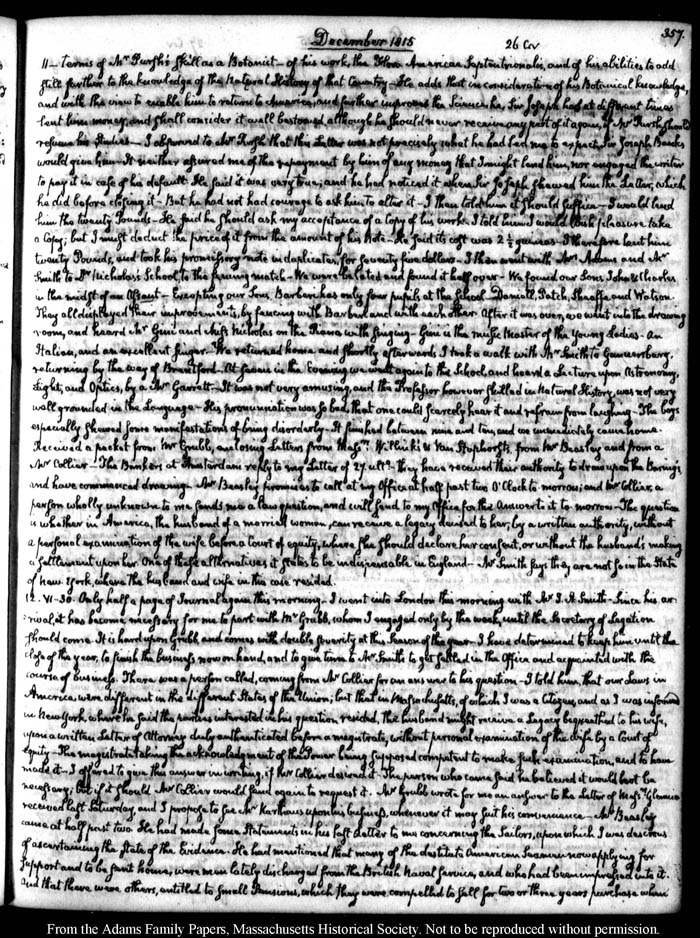 357.
December 1815
26 Cov
11 — terms of Mr Pursh's skill as a Botanist — of his work, the Flora Americae Septentrionalis, and of his abilities to add
still further to the knowledge of the Natural History of that Country — He adds that in consideration of his Botanical knowledge,
and with the view to enable him to return to America, and further improve the Science he, Sir Joseph has at different times
lent him money, and shall consider it well bestowed although he should never receive any part of it again, if Mr Pursh should
resume his Studies — I observed to Mr Pursh that this Letter was not precisely what he had led me to expect Sir Joseph Banks
would give him — It neither assured me of the repayment by him of any money that I might lend him, nor engaged the writer
to pay it in case of his default. He said it was very true, and he had noticed it when Sir Joseph shewed him the Letter, which
he did before closing it — But he had not had courage to ask him to alter it — I then told him it should suffice — I would lend
him the twenty Pounds — He said he should ask my acceptance of a copy of his work. I told him I would with pleasure take
a Copy; but I must deduct the price of it from the amount of his Note — He said its cost was 2 ½ guineas — I therefore lent him
twenty Pounds, and took his promissory note in duplicates, for seventy five dollars — I then went with Mrs Adams and Mr
Smith to Dr Nicholas's School, to the fencing match — We were belated and found it half over — We found our Sons John & Charles
in the midst of an Assaut — Excepting our Sons, Barber has only four pupils at the School. Daniell, Patch, Sheaffe and Watson.
They all displayed their improvements, by fencing with Barber and with each other. After it was over, we went into the drawing
room, and heard Mr Gini and Miss Nicholas on the Piano with singing — Gini is the music Master of the Young Ladies — An
Italian, and an excellent singer — We returned home and shortly afterwards I took a walk with Mr Smith to Gunnersbury,
returning by the way of Brentford. At seven in the Evening we went again to the School, and heard a Lecture upon Astronomy,
Light, and Optics, by a Mr Garrett — It was not very amusing, and the Professor however skilled in Natural History, was not very
well grounded in the Language — His pronunciation was so bad, that one could scarcely hear it and refrain from laughing — The boys
especially shewed some manifestations of being disorderly — It finished between nine and ten, and we immediately came home.
Received a packet from Mr Grubb, enclosing Letters from Messrs Willinks & Van Staphorsts, from Mr Beasley and from a
Mr Collier — The Bankers at Amsterdam reply to my Letter of 28 ulto — they have received their authority to draw upon the Barings
and have commenced drawing — Mr Beasley promises to call at my Office at half past two O'Clock to morrow; and Mr Collier, a
person wholly unknown to me sends me a law question, and will send to my Office for the answer to it to-morrow — The question
is whether in America, the husband of a married woman, can receive a legacy devised to her, by a written authority, without
a personal examination of the wife before a Court of equity, where she should declare her consent, or without the husband's making
a settlement upon her. One of these alternatives it states to be indispensable in England — Mr Smith says they are not so in the State
of New York, where the husband and wife in this case resided.
12. VI - 30. Only half a page of Journal again this morning. I went into London this morning with Mr J. A. Smith — Since his ar-
rival, it has become necessary for me to part with Mr Grubb, whom I engaged only by the week, until the Secretary of Legation
should come. It is hard upon Grubb and comes with double severity at this Season of the year — I have determined to keep him until the
close of the year, to finish the business now on hand, and to give time to Mr Smith to get settled in the Office and acquainted with the
course of business. There was a person called, coming from Mr Collier for an answer to his question — I told him, that our Laws in
America were different in the different States of the Union; but that in Massachusetts, of which I was a Citizen, and as I was informed
in New York, where he said the parties interested in his question, resided, the husband might receive a Legacy bequeathed to his wife,
upon a written Letter of Attorney duly authenticated before a magistrate, without personal examination of the wife by a Court of
Equity — The magistrate taking the acknowledgment of the Power being supposed competent to make such examination, and to have
made it — I offered to give this answer in writing, if Mr Collier desired it. The person who came said he believed it would not be
necessary; but if it should Mr Collier would send again to request it. Mr Grubb wrote for me an answer to the Letter of Messrs Glennie
received last Saturday, and I propose to see Mr Karthaus upon his business, whenever it may suit his convenience — Mr Beasley
came at half past two. He had made some Statements in his last Letter to me concerning the Sailors, upon which I was desirous
of ascertaining the State of the Evidence. He had mentioned that many of the destitute American Seamen now applying for
support and to be sent home, were men lately discharged from the British Naval Service, and who had been impressed into it.
And that there were others, entitled to small Pensions, which they were compelled to sell for two or three years purchase when
From the Adams Family Papers, Massachusetts Historical Society. Not to be reproduced without permission.